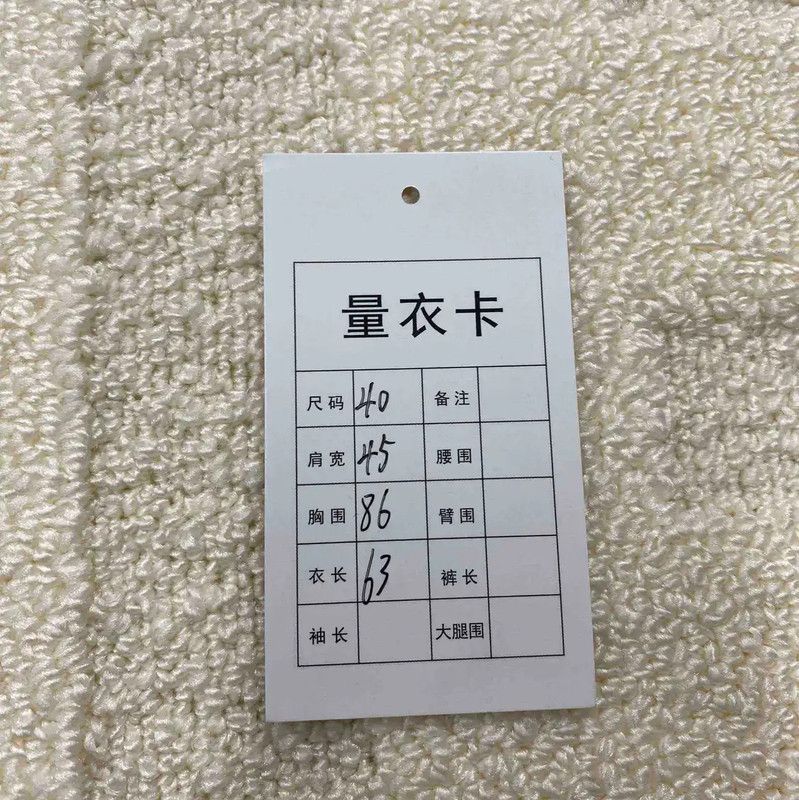 量衣卡
尺码 40 备注
肩宽 45 腰围
胸围 86 臂围
衣长 63 裤长
袖长 大腿围